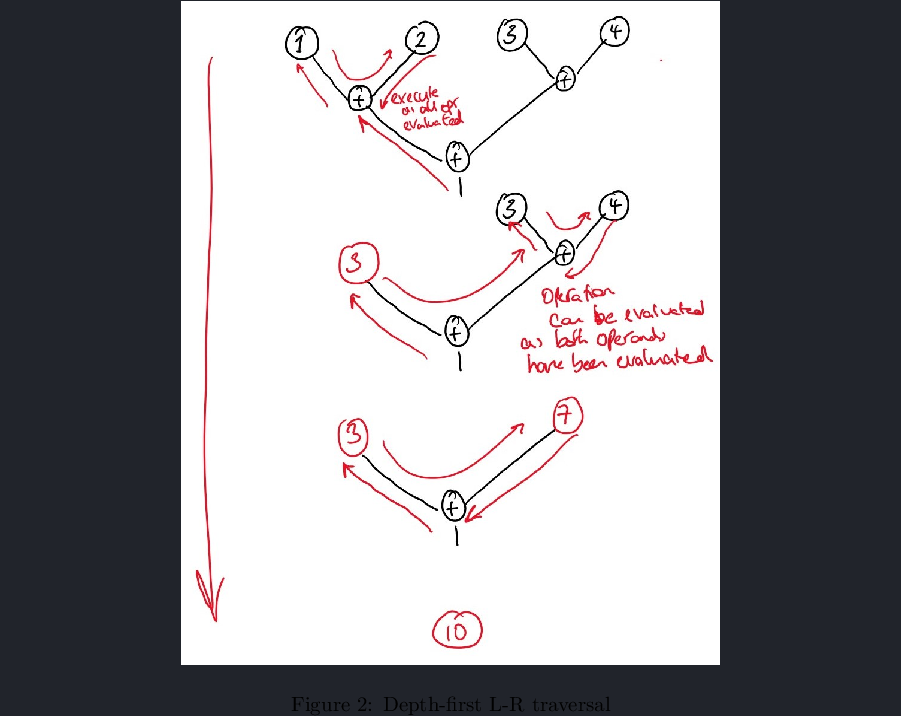 1 2 3 4
+ execute +
as all opr
evaluated
+
3 4
3 +
Operation
can be evaluated
+ as both operands
have been evaluated
3 7
+
10
Figure 2: Depth-first L-R traversal